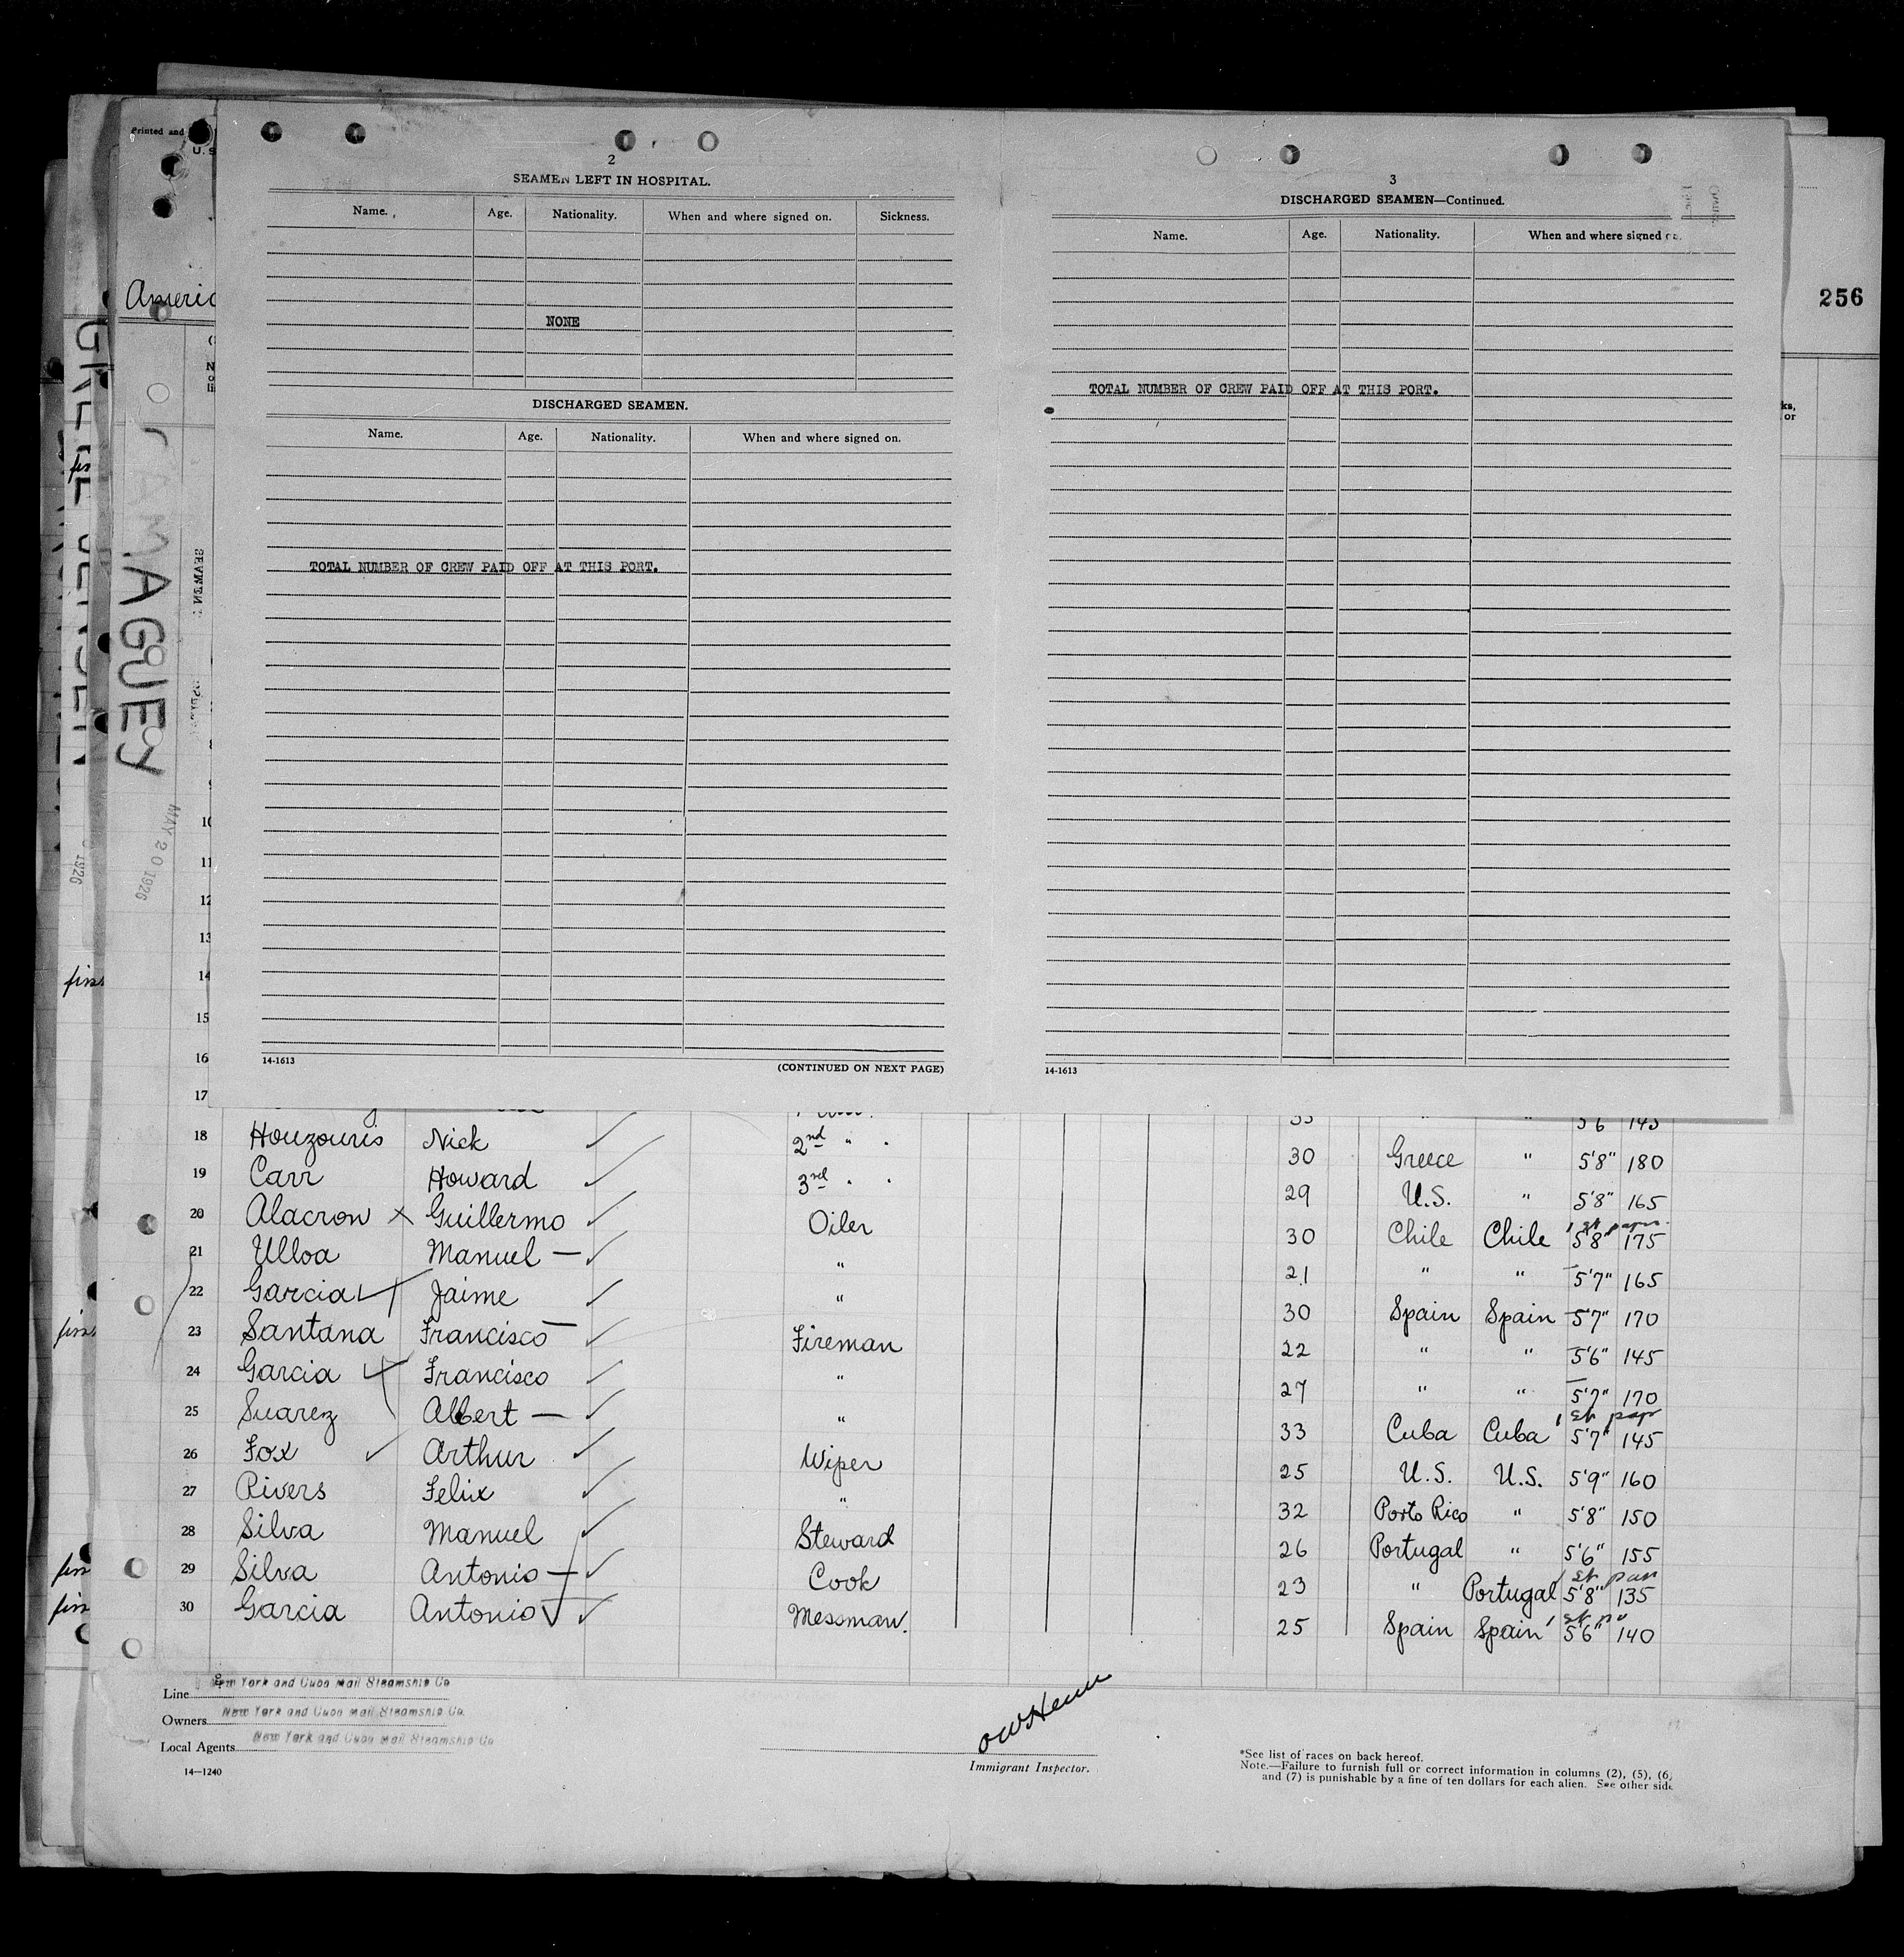 Printed and
U. S
Americ
256
ORAMAGUEY
MAY 20 1926
2
SEAMEN LEFT IN HOSPITAL.
Name. Age. Nationality. When and where signed on. Sickness.
NONE
DISCHARGED SEAMEN.
Name. Age. Nationality. When and where signed on.
TOTAL NUMBER OF CREW PAID OFF AT THIS PORT.
14-1613 (CONTINUED ON NEXT PAGE)
3
DISCHARGED SEAMEN—Continued.
Name. Age. Nationality. When and where signed on.
TOTAL NUMBER OF CREW PAID OFF AT THIS PORT.
14-1613
10
11
12
13
14
15
16
17 5'6 145
18 Houzouris Nick 2nd " 30 Greece " 5'8" 180
19 Carr Howard 3rd " 29 U.S. " 5'8" 165
20 Alacron x Guillermo Oiler 30 Chile Chile 5'8" 175
21 Ulloa Manuel — " 21 " " 5'7" 165
22 Garcia Jaime " 30 Spain Spain 5'7" 170
23 Santana Francisco — Fireman 22 " " 5'6" 145
24 Garcia Francisco " 27 " " 5'7" 170
25 Suarez Albert — " 33 Cuba Cuba 5'7" 145
26 Fox Arthur Wiper 25 U.S. U.S. 5'9" 160
27 Rivers Felix " 32 Porto Rico " 5'8" 150
28 Silva Manuel Steward 26 Portugal " 5'6" 155
29 Silva Antonio — Cook 23 " Portugal 5'8" 135
30 Garcia Antonio Messman. 25 Spain Spain 5'6" 140
Line New York and Cuba Mail Steamship Co
Owners New York and Cuba Mail Steamship Co.
Local Agents New York and Cuba Mail Steamship Co
14—1240
Immigrant Inspector.
*See list of races on back hereof.
Note.—Failure to furnish full or correct information in columns (2), (5), (6)
and (7) is punishable by a fine of ten dollars for each alien. See other side